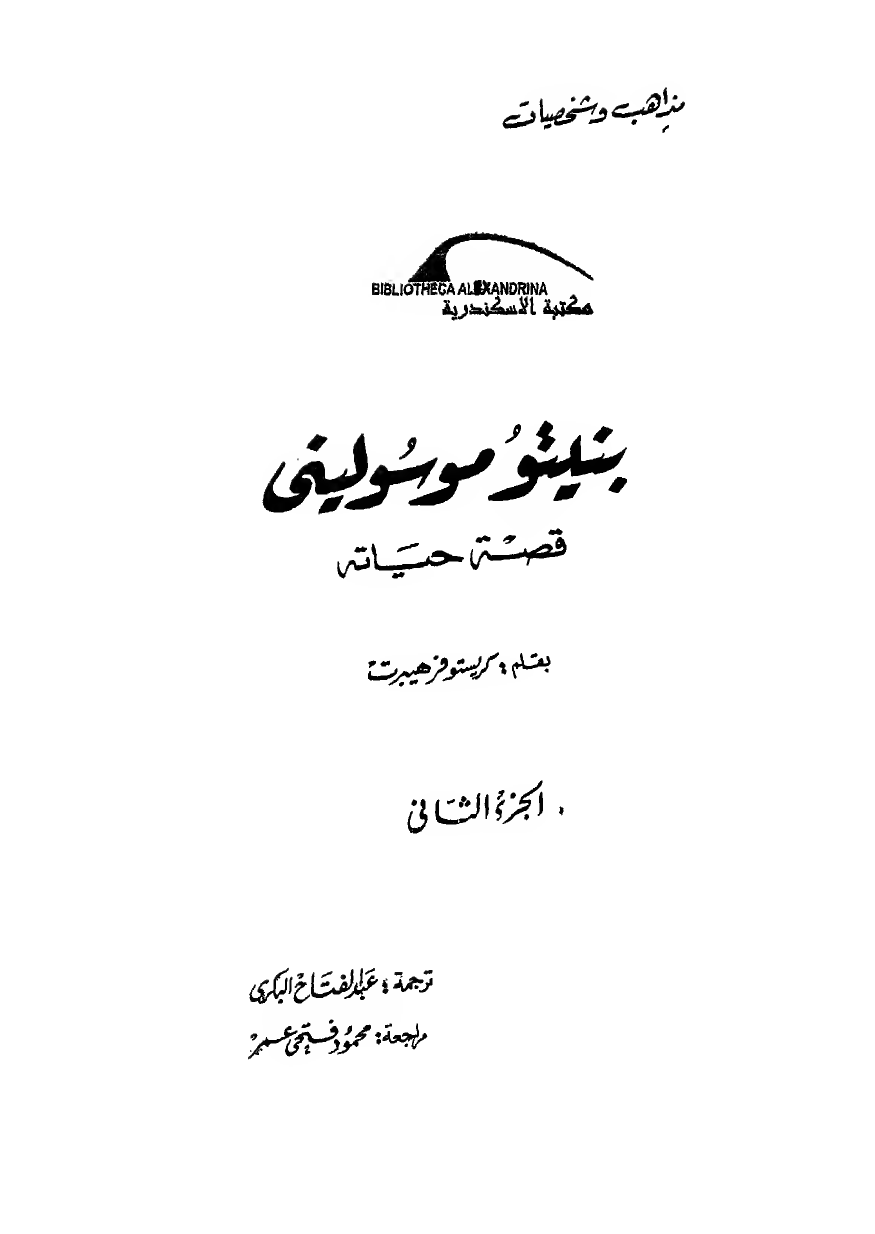 مذاهب وشخصيات
BIBLIOTHECA ALEXANDRINA
مكتبة الاسكندرية
بنيتو موسُولينى
قصة حيَاته
بقلم : كريستوفر هيبرت
الجزء الثانى
ترجمة : عَبد الفتاح البكرى
مراجعة : محمود فتحى عمر